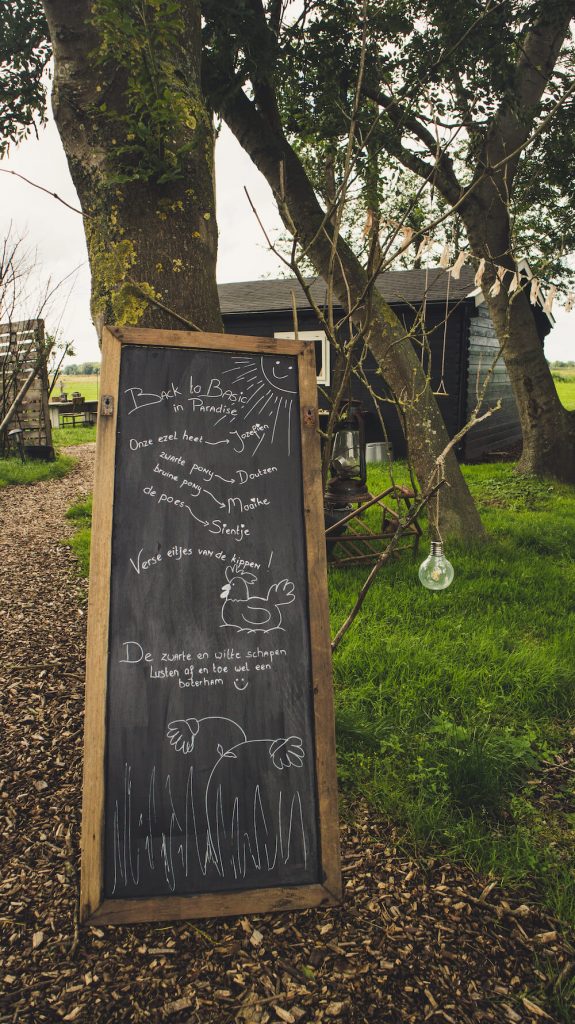 Back to Basic
in Paradise
Onze ezel heet → Jozefien
zwarte pony → Doutzen
bruine pony → Maaike
de poes → Sientje
Verse eitjes van de kippen !
De zwarte en witte schapen
Lusten af en toe wel een
boterham